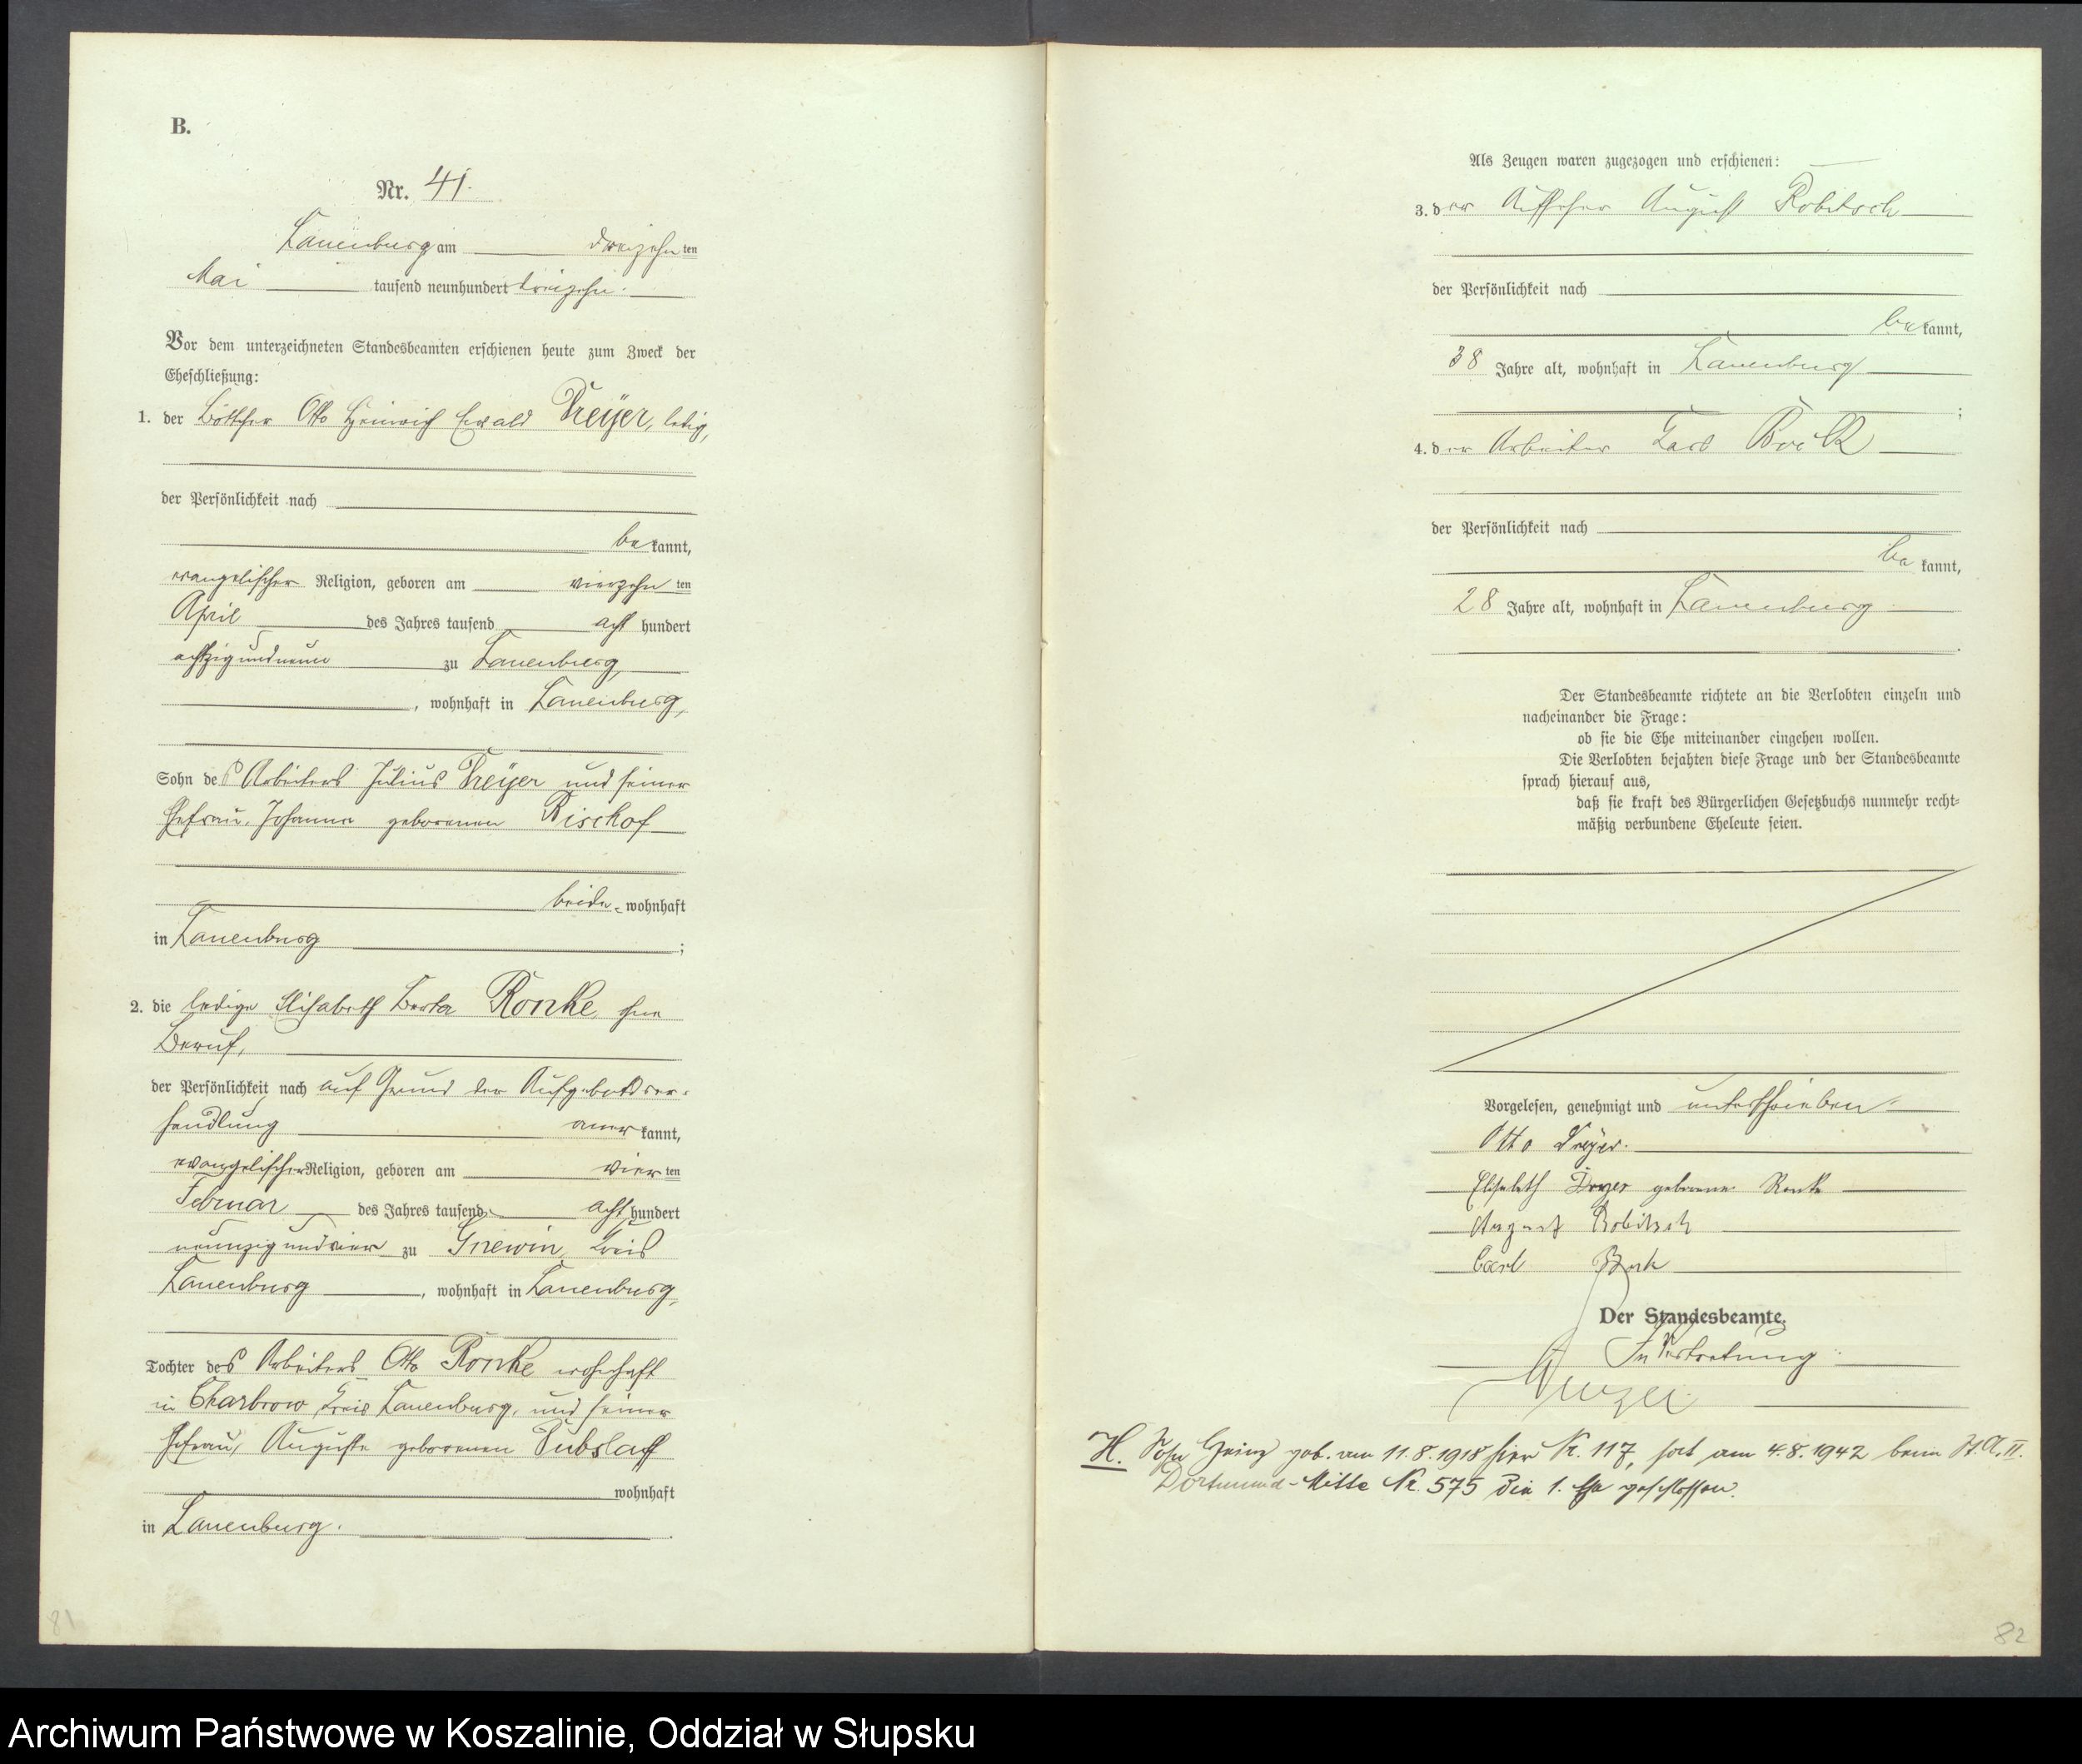 B.
Nr. 41.
Lauenburg am dreizehnten
Mai tausend neunhundert dreizehn.
Vor dem unterzeichneten Standesbeamten erschienen heute zum Zweck der
Eheschließung:
1. der Böttcher Otto Heinrich Ewald Dreÿer, ledig,
der Persönlichkeit nach
bekannt,
evangelischer Religion, geboren am vierzehnten
April des Jahres tausend acht hundert
achtzigundneun zu Lauenburg,
, wohnhaft in Lauenburg,
Sohn des Arbeiters Julius Dreÿer und seiner
Ehefrau, Johanna geborenen Bischof
beide wohnhaft
in Lauenburg ;
2. die ledige Elisabeth Berta Ronke, ohne
Beruf,
der Persönlichkeit nach auf Grund der Aufgebotsver-
handlung anerkannt,
evangelischer Religion, geboren am vierten
Februar des Jahres tausend acht hundert
neunzigundvier zu Gnewin, Kreis
Lauenburg , wohnhaft in Lauenburg,
Tochter des Arbeiters Otto Ronke wohnhaft
in Charbrow Kreis Lauenburg, und seiner
Ehefrau, Auguste geborenen Dubslaff
wohnhaft
in Lauenburg.
81
Als Zeugen waren zugezogen und erschienen:
3. der Aufseher August Robitsch
der Persönlichkeit nach
bekannt,
38 Jahre alt, wohnhaft in Lauenburg
;
4. der Arbeiter Carl
der Persönlichkeit nach
bekannt,
28 Jahre alt, wohnhaft in Lauenburg
.
Der Standesbeamte richtete an die Verlobten einzeln und
nacheinander die Frage:
ob sie die Ehe miteinander eingehen wollen.
Die Verlobten bejahten diese Frage und der Standesbeamte
sprach hierauf aus,
daß sie kraft des Bürgerlichen Gesetzbuchs nunmehr recht-
mäßig verbundene Eheleute seien.
Vorgelesen, genehmigt und unterschrieben.
Otto Dreÿer.
Elisabeth Dreyer geborene Ronke
August Robitsch
Carl
Der Standesbeamte.
In Vertretung
H. Sohn Heinz geb. am 11.8.1918 hier Nr. 117, hat am 4.8.1942 beim St.A. II.
Dortmund-Mitte Nr. 575 die 1. Ehe geschlossen.
82
Archiwum Państwowe w Koszalinie, Oddział w Słupsku